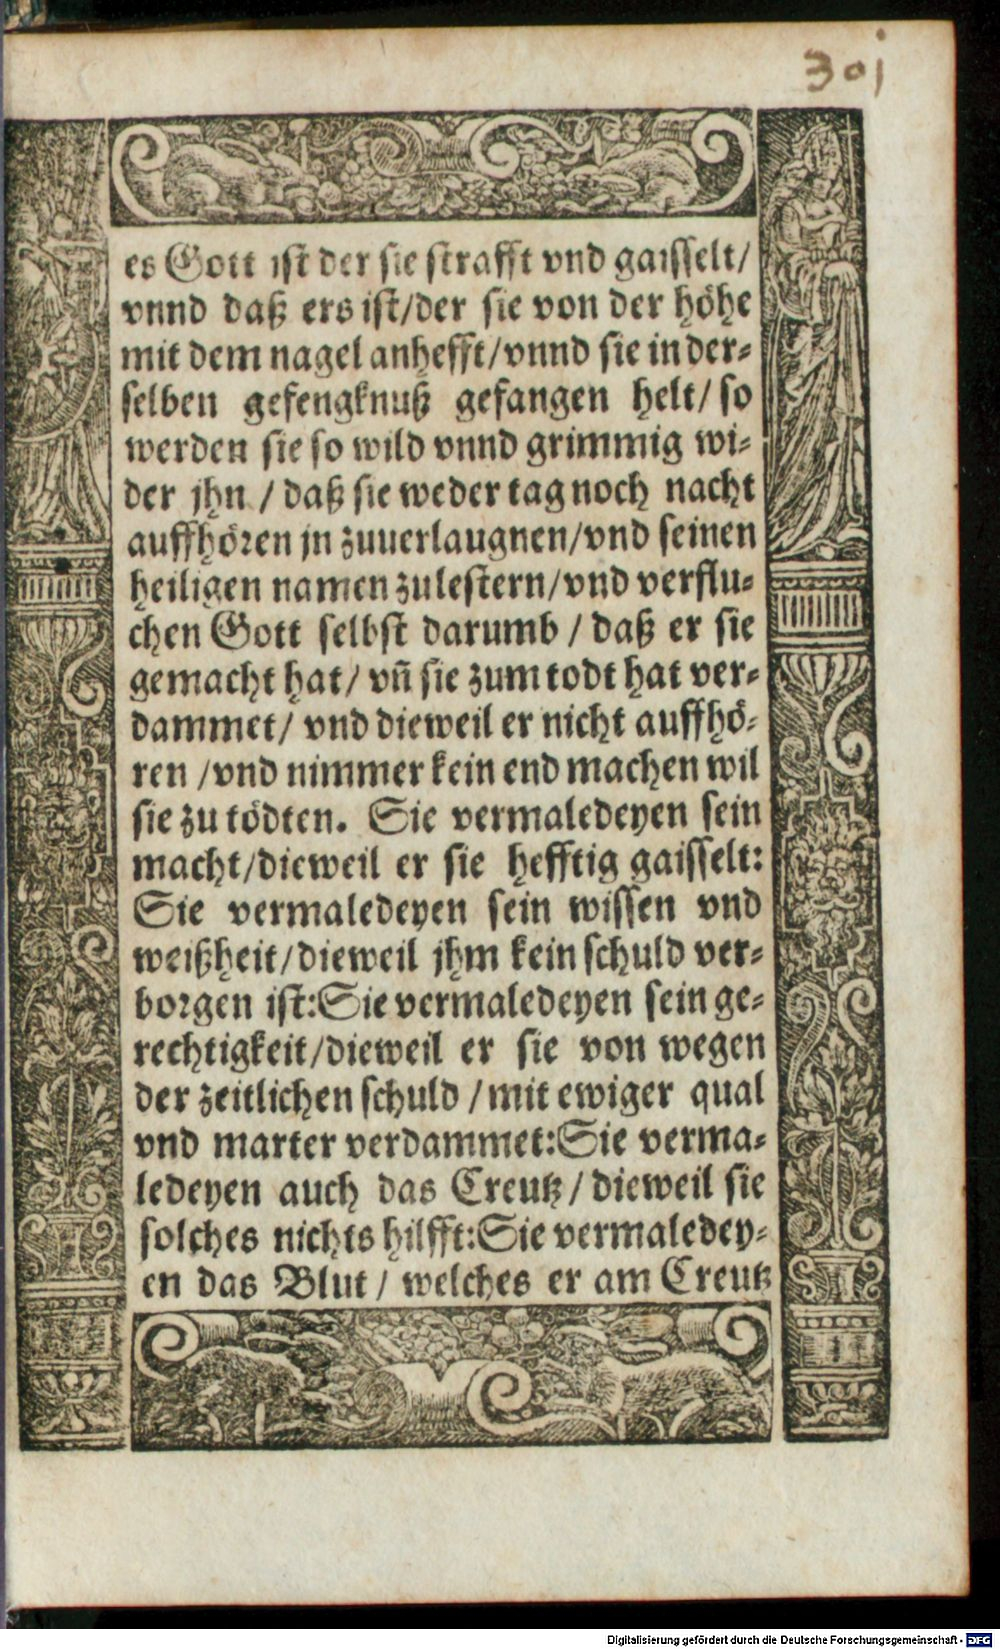 301
es Gott ist der sie strafft vnd gaisselt/
vnnd daß ers ist/der sie von der höhe
mit dem nagel anhefft/vnnd sie in der-
selben gefengknuß gefangen helt/ so
werden sie so wild vnnd grimmig wi-
der jhn / daß sie weder tag noch nacht
auffhören jn zuuerlaugnen/vnd seinen
heiligen namen zulestern/vnd verflu-
chen Gott selbst darumb / daß er sie
gemacht hat/ vñ sie zum todt hat ver-
dammet/ vnd dieweil er nicht auffhö-
ren /vnd nimmer kein end machen wil
sie zu tödten. Sie vermaledeyen sein
macht/dieweil er sie hefftig gaisselt:
Sie vermaledeyen sein wissen vnd
weißheit/dieweil jhm kein schuld ver-
borgen ist:Sie vermaledeyen sein ge-
rechtigkeit/dieweil er sie von wegen
der zeitlichen schuld /mit ewiger qual
vnd marter verdammet:Sie verma-
ledeyen auch das Creutz/ dieweil sie
solches nichts hilfft:Sie vermaledey-
en das Blut/ welches er am Creutz
Digitalisierung gefördert durch die Deutsche Forschungsgemeinschaft - DFG